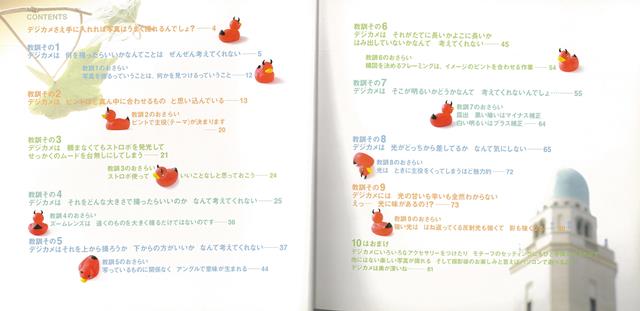 CONTENTS
デジカメさえ手に入れれば写真はうまく撮れるんでしょ? ── 4
教訓その1
デジカメは 何を撮ったらいいかなんてことは ぜんぜん考えてくれない ── 5
教訓1のおさらい
写真を撮るっていうことは、何かを見つけるっていうこと ── 12
教訓その2
デジカメは ピントはど真ん中に合わせるもの と思い込んでいる ── 13
教訓2のおさらい
ピントで主役(テーマ)が決まります
── 20
教訓その3
デジカメは 頼まなくてもストロボを発光して
せっかくのムードを台無しにしてしまう ── 21
教訓3のおさらい
ストロボ使って いいことなしと思っておこう ── 24
教訓その4
デジカメは それをどんな大きさで撮ったらいいのか なんて考えてくれない ── 25
教訓4のおさらい
ズームレンズは 遠くのものを大きく撮るだけではないのです ── 36
教訓その5
デジカメはそれを上から撮ろうか 下からの方がいいか なんて考えてくれない ── 37
教訓5のおさらい
写っているものに関係なく アングルで意味が生まれる ── 44
教訓その6
デジカメは それがたてに長いかよこに長いか
はみ出していないかなんて 考えてくれない ── 45
教訓6のおさらい
構図を決めるフレーミングは、イメージのピントを合わせる作業 ── 54
教訓その7
デジカメは そこが明るいかどうかなんて 考えてくれないんでしょ ── 55
教訓7のおさらい
露出 黒い暗いはマイナス補正
白い明るいはプラス補正 ── 64
教訓その8
デジカメは 光がどっちから差してるか なんて気にしない ── 65
教訓8のおさらい
光は ときに主役をくってしまうほど魅力的 ── 72
教訓その9
デジカメには 光の甘いも辛いも全然わからない
えっ… 光に味があるの!? ── 73
教訓9のおさらい
強い光は はね返ってくる反射光も強くて 影も強く
10はおまけ
デジカメにいろいろなアクセサリーをつけたり モチーフのセッティングにも
他にはない楽しい写真が撮れる そして撮影後のお楽しみと言えばパソコンで
デジカメは奥が深いね ── 81